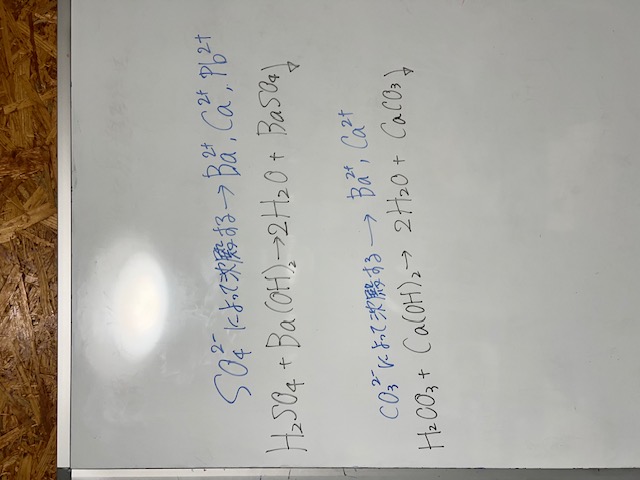 SO₄²⁻によって沈殿する→Ba²⁺, Ca²⁺, Pb²⁺
H₂SO₄ + Ba(OH)₂→2H₂O + BaSO₄↓
CO₃²⁻によって沈殿する→Ba²⁺, Ca²⁺
H₂CO₃ + Ca(OH)₂→2H₂O + CaCO₃↓